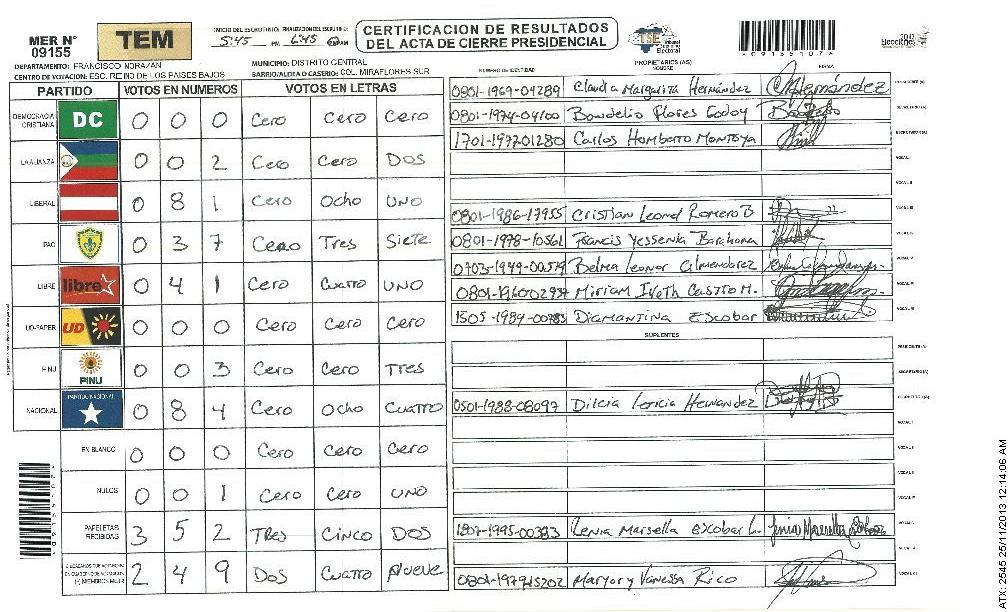 MER N° 09155
TEM
INICIO DEL ESCRUTINIO: 5:45 PM FINALIZACION DEL ESCRUTINIO: 6:45
CERTIFICACION DE RESULTADOS
DEL ACTA DE CIERRE PRESIDENCIAL
TSE Tribunal Supremo Electoral
DEPARTAMENTO: FRANCISCO MORAZAN
MUNICIPIO: DISTRITO CENTRAL
CENTRO DE VOTACION: ESC. REINO DE LOS PAISES BAJOS
BARRIO/ALDEA O CASERIO: COL. MIRAFLORES SUR
PARTIDO VOTOS EN NUMEROS VOTOS EN LETRAS
DEMOCRACIA CRISTIANA DC 0 0 0 Cero Cero Cero
LA ALIANZA 0 0 2 Cero Cero Dos
LIBERAL 0 8 1 Cero Ocho Uno
PAC 0 3 7 Cero Tres Siete
LIBRE libre 0 4 1 Cero Cuatro Uno
UD-FAPER UD 0 0 0 Cero Cero Cero
PINU PINU 0 0 3 Cero Cero Tres
NACIONAL PARTIDO NACIONAL 0 8 4 Cero Ocho Cuatro
EN BLANCO 0 0 0 Cero Cero Cero
NULOS 0 0 1 Cero Cero Uno
PAPELETAS RECIBIDAS 3 5 2 Tres Cinco Dos
2 4 9 Dos Cuatro Nueve
PROPIETARIOS (AS)
NUMERO DE IDENTIDAD NOMBRE FIRMA
0801-1969-04289 Claudia Margarita Hernández
0801-1974-04100 Bondelio Flores Godoy
1701-197701280 Carlos Homberto Montoya
0801-1986-17955 Cristian Leonel Romero B
0801-1978-10561 Francis Yessenia Barahona
0703-1949-00519 Belma Leonor Almendarez
0801-196002937 Miriam Iveth Castro M.
1505-1984-00783 Diamantina Escobar
SUPLENTES
0501-1988-08097 Dilcia Leticia Hernandez
1807-1995-00383 Lenia Marsella Escobar L.
0801-197915202 Maryory Vanessa Rico
ATX: 2545 25/11/2013 12:14:06 AM